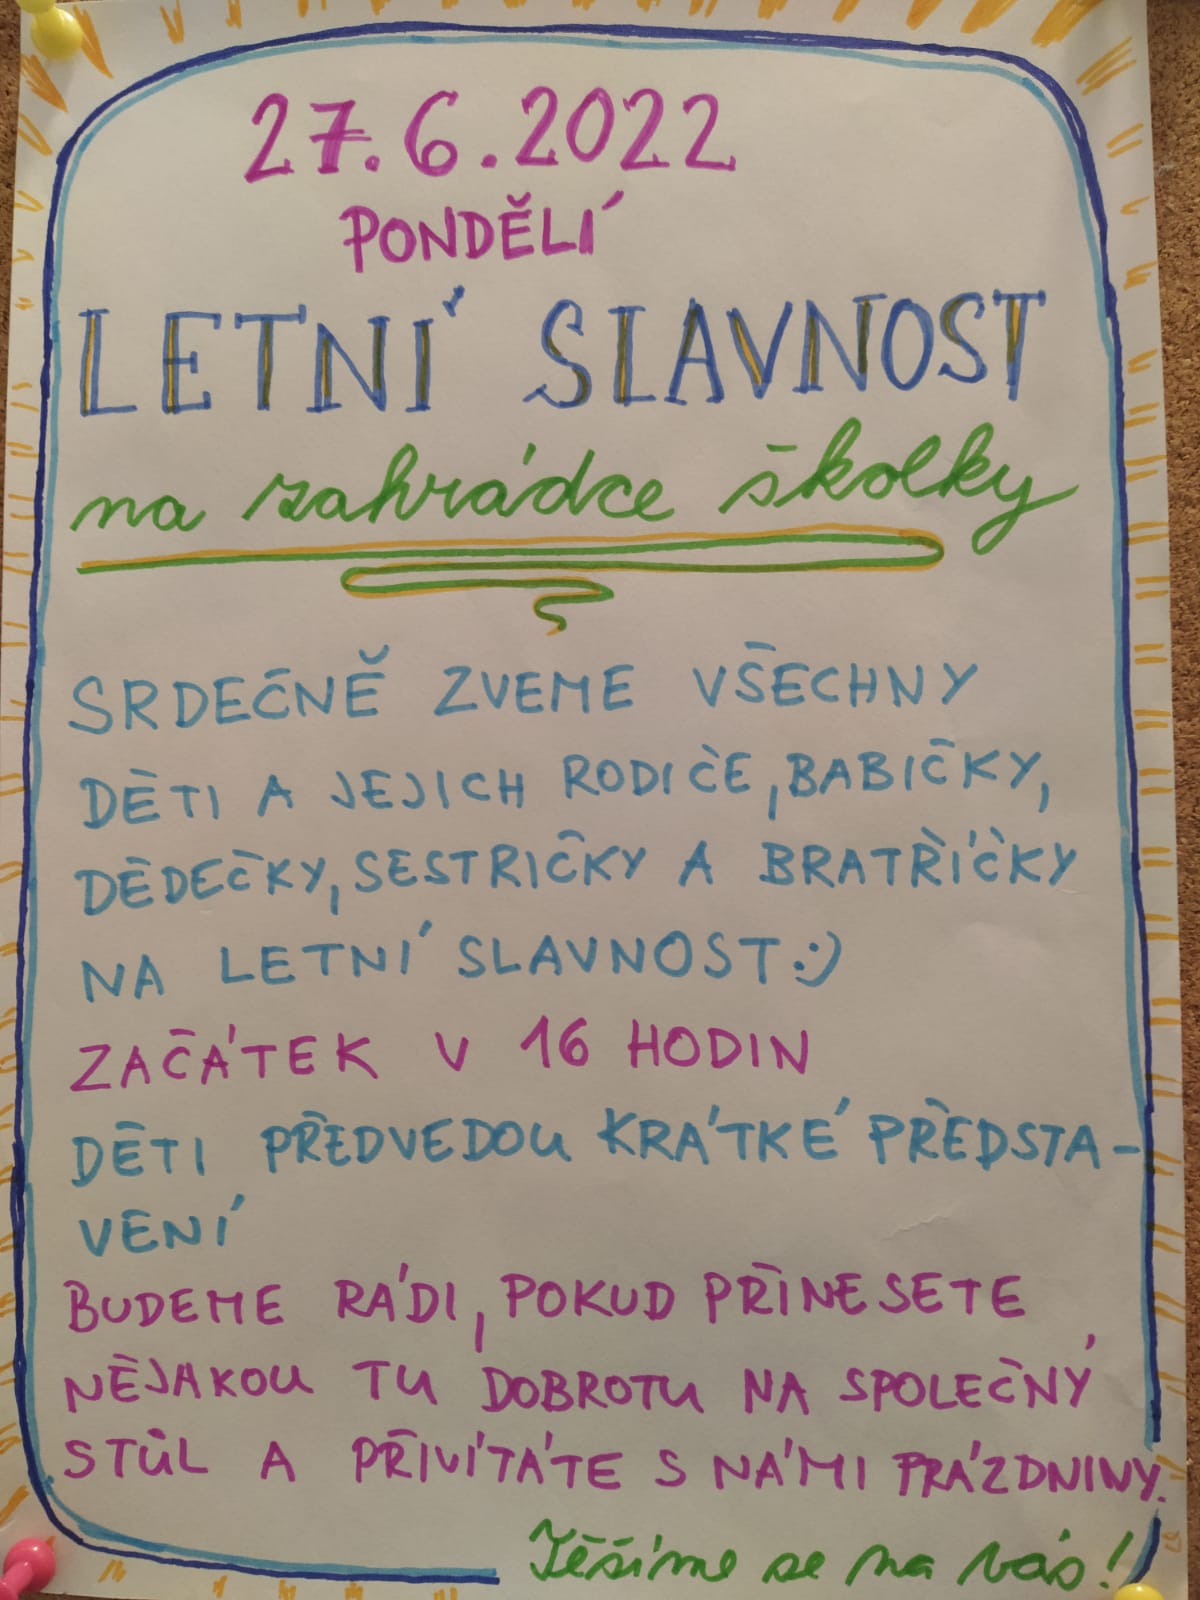 27.6.2022
PONDĚLÍ
LETNÍ SLAVNOST
na zahrádce školky
SRDEČNĚ ZVEME VŠECHNY
DĚTI A JEJICH RODIČE, BABIČKY,
DĚDEČKY, SESTŘIČKY A BRATŘÍČKY
NA LETNÍ SLAVNOST :)
ZAČÁTEK V 16 HODIN
DĚTI PŘEDVEDOU KRÁTKÉ PŘEDSTA-
VENÍ
BUDEME RÁDI, POKUD PŘINESETE
NĚJAKOU TU DOBROTU NA SPOLEČNÝ
STŮL A PŘIVÍTÁTE S NÁMI PRÁZDNINY.
Těšíme se na vás!